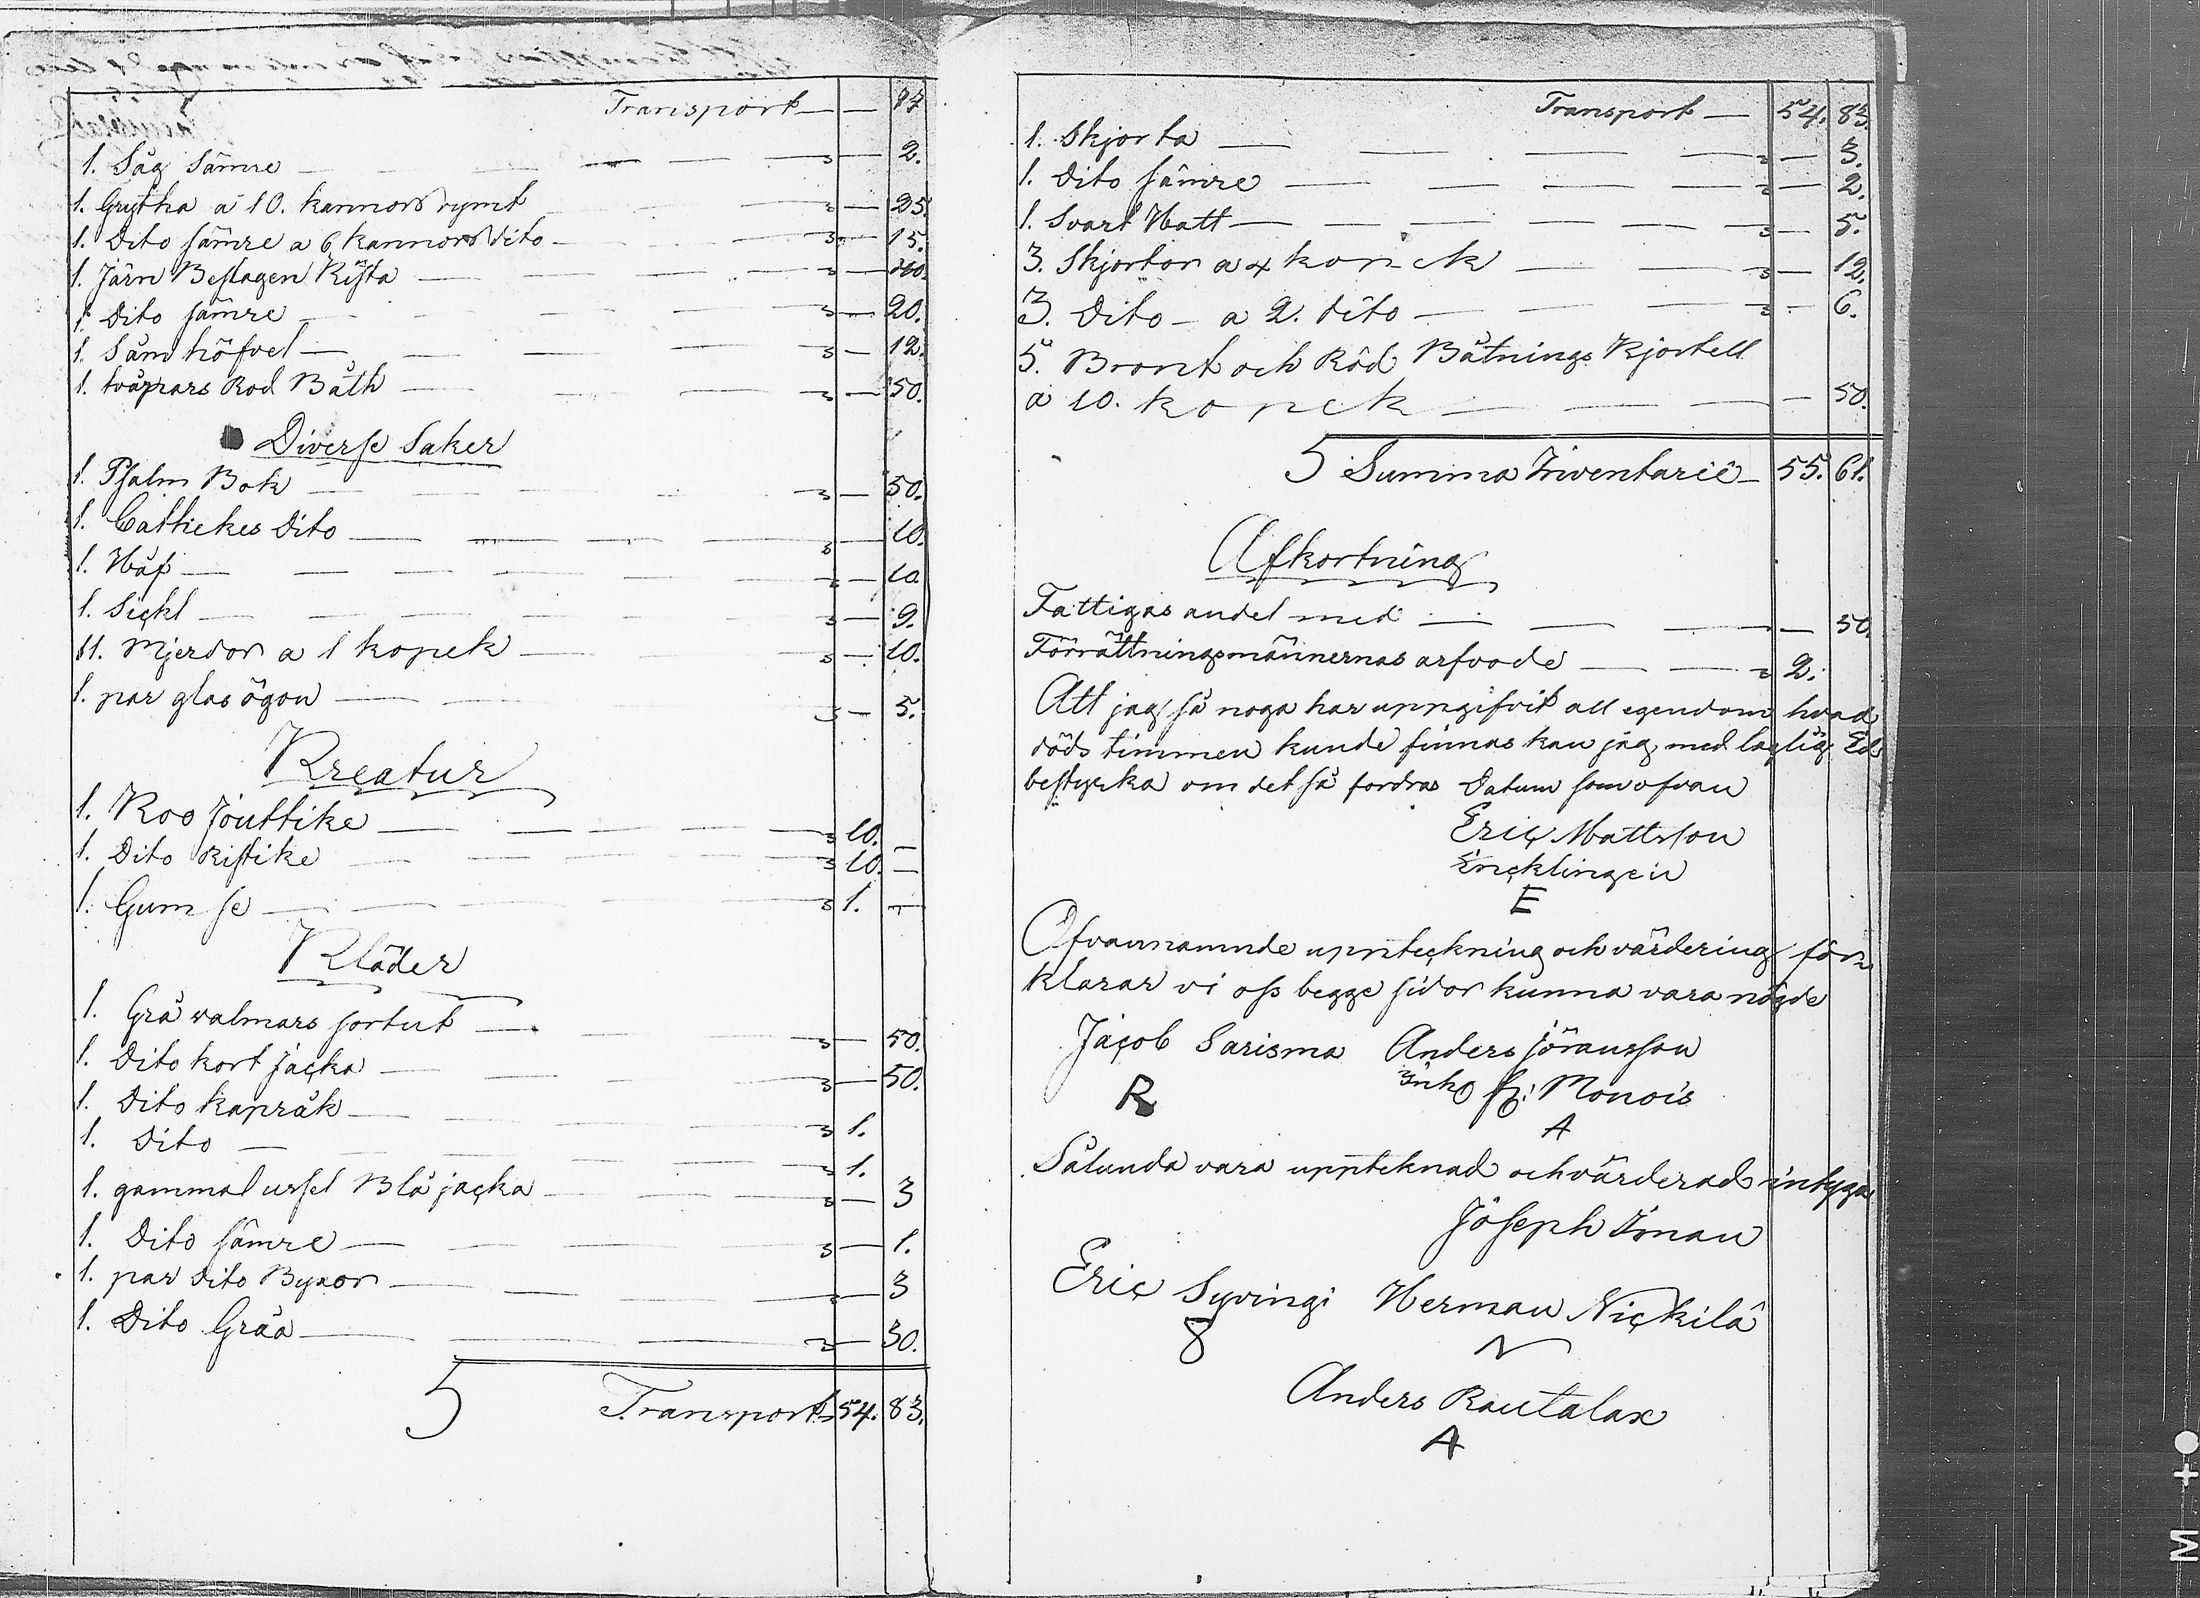 Transport — — 97
1. Såg Sämre — 2.
1. Grytha a 10. kannors rymt — 25.
1. Dito sämre a 6 kannors dito — 15.
1. Järn Beslagen Kista —
1. Dito sämre — 20.
1. Såm höfvel — 12.
1. tväprars Rod Båth — 50.
Diverse Saker
1. Psalm Bok — 50.
1. Cathekes Dito — 10.
1. Håf — 10.
1. Sickl — 9.
11. Mjerdor a 1 kopek — 10.
1. par glas ögon — 5.
Kreatur
1. Koo Jouttike — 10. —
1. Dito Ristike — 10. —
1. Gumse — 1. —
Kläder
1. Grå valmars sortut — 50.
1. Dito kort jacka — 50.
1. Dito kapråk — 1.
1. Dito — 1.
1. gammal ussel Blå jacka — 3
1. Dito sämre — 1.
1. par dito Byxor — 3
1. Dito Gråa — 30.
5 Transport 54. 83.
Transport — 54. 83.
1. Skjorta — 3.
1. Dito sämre — 2.
1. Svart Hatt — 5.
3. Skjortor a 4 kopek — 12.
3. Dito — a 2. dito — 6.
5. Bront och Röd Båtnings Kjortell
a 10. kopek — 50.
5 Summa Inventarie — 55. 61.
Afkortning
Fattigas andel med — 50.
Förrättningsmännernas arfvode — 2.
Att jag så noga har uppgifvit all egendom hvad
döds timmen kunde finnas kan jag med laglig Ed
bestyrka om det så fordras Datum som ofvan
Eric Mattsson
Encklingen
E
Ofvannamnde uppteckning och värdering för
klarar vi oss begge sidor kunna vara nögde
Jacob Sarisma Anders Jöransson
R Monois
A
Sålunda vara uppteknad och värderad intyga
Joseph Jonau
Eric Syvingi Herman Nickilä
8 N
Anders Rautalax
A